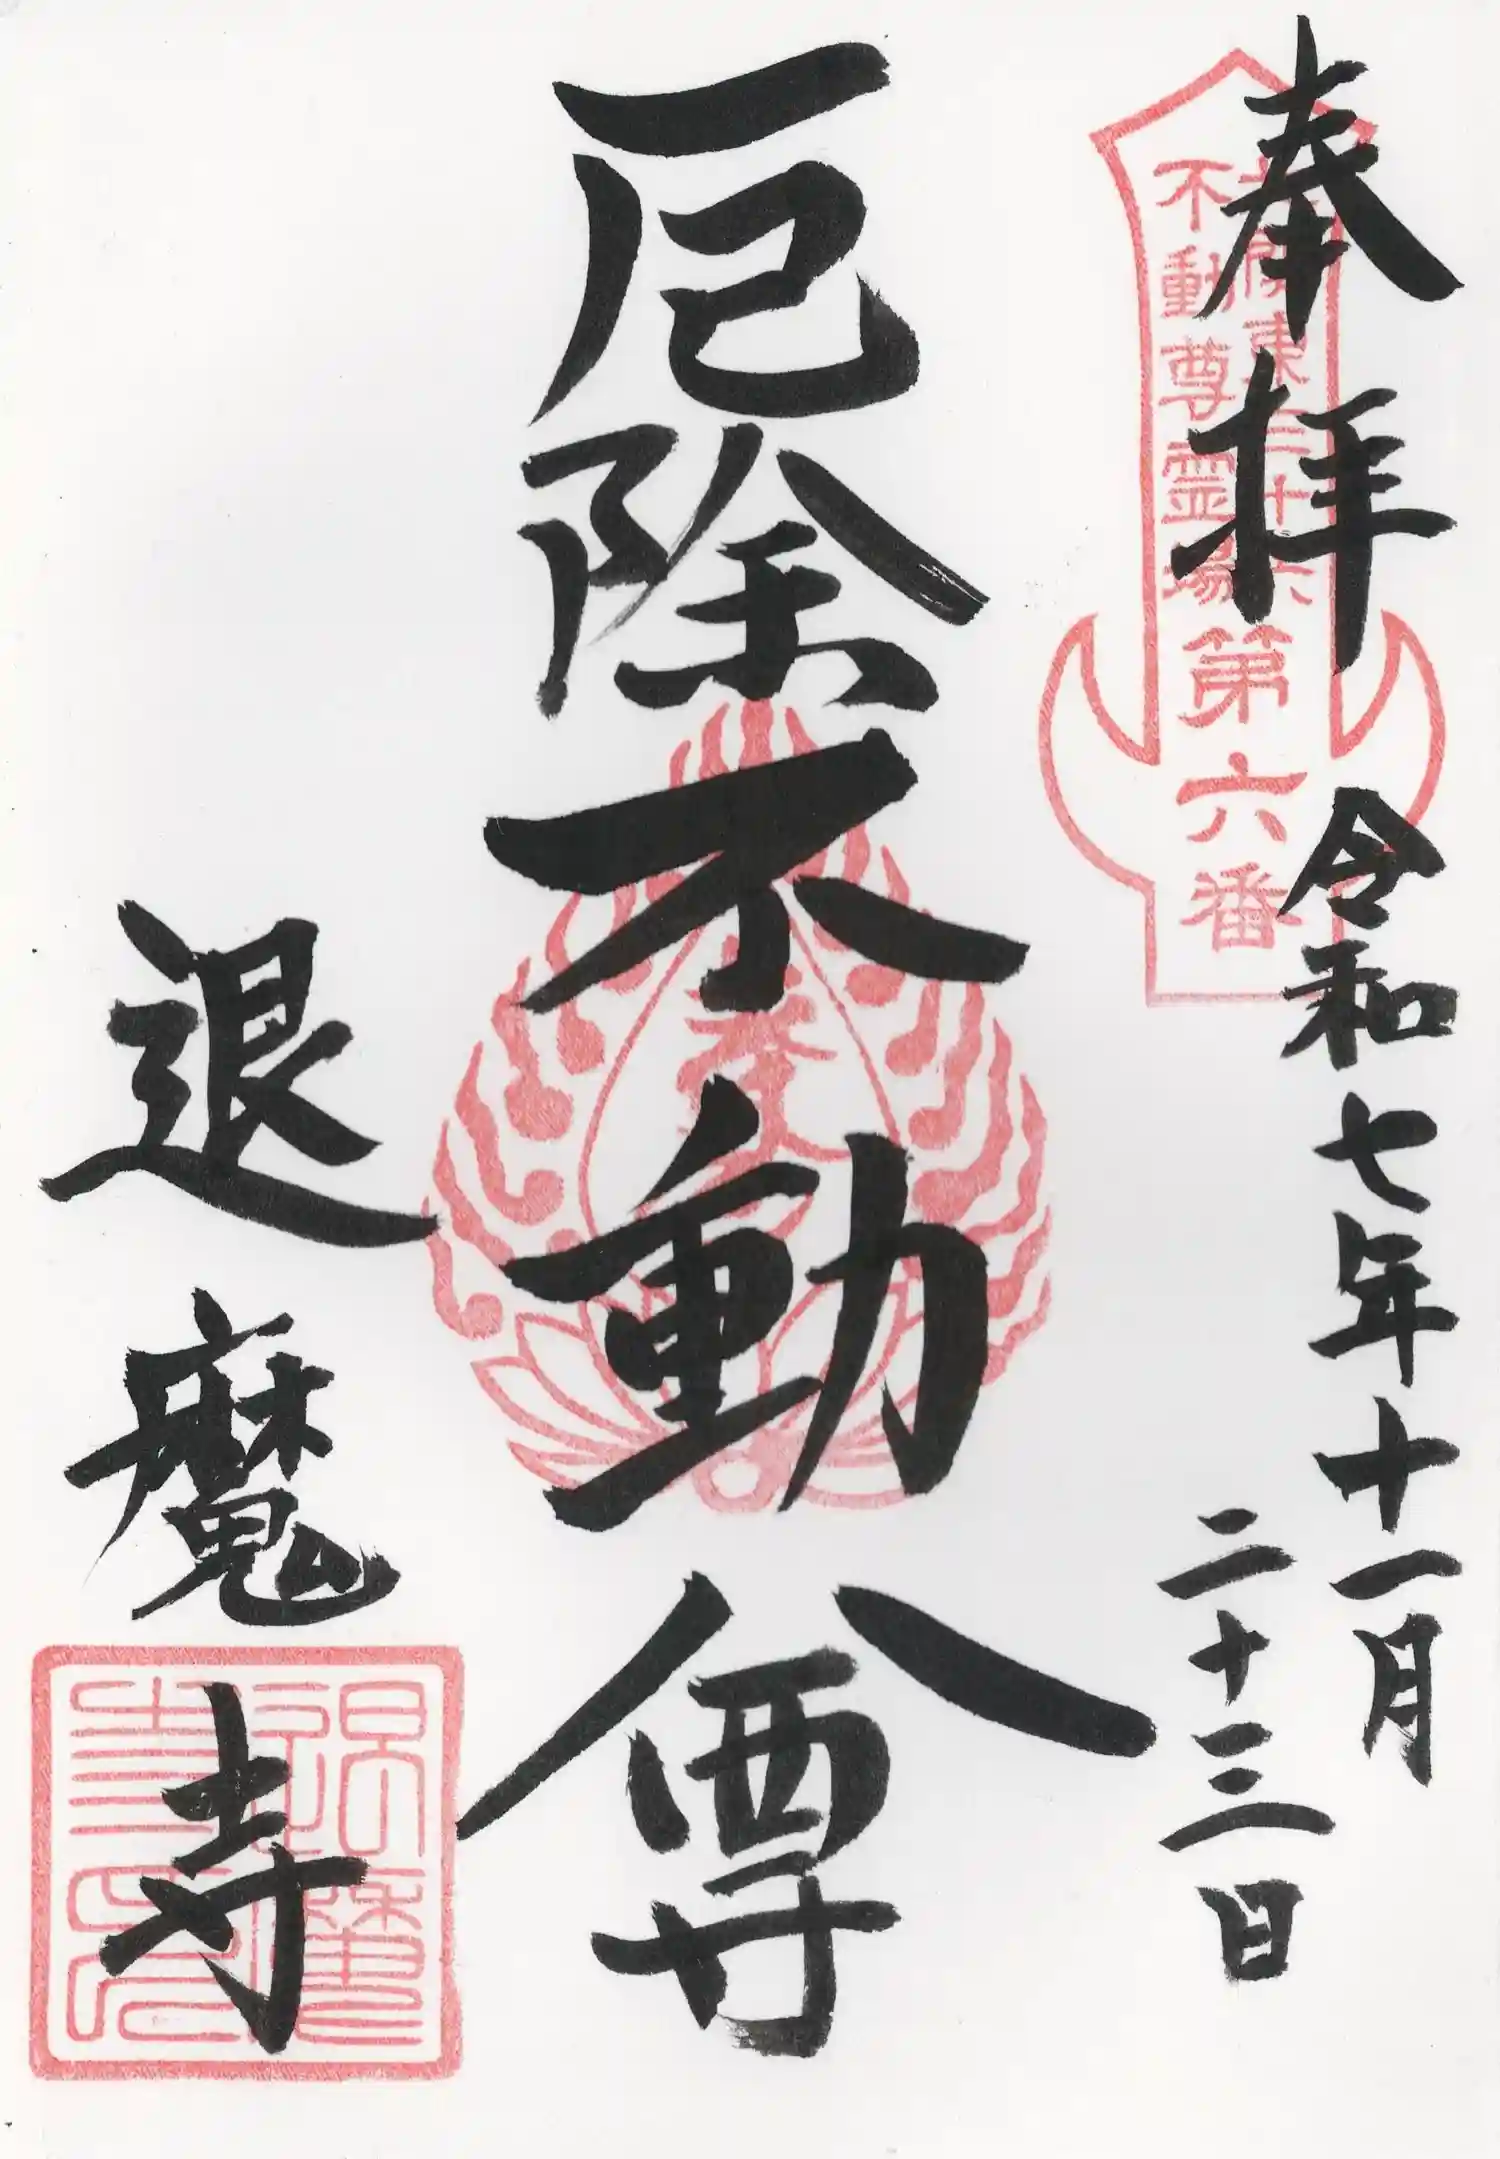 奉拝
北関東三十六
不動尊霊場
第六番
令和七年十一月
二十三日
厄除不動尊
退魔寺
退魔
寺印